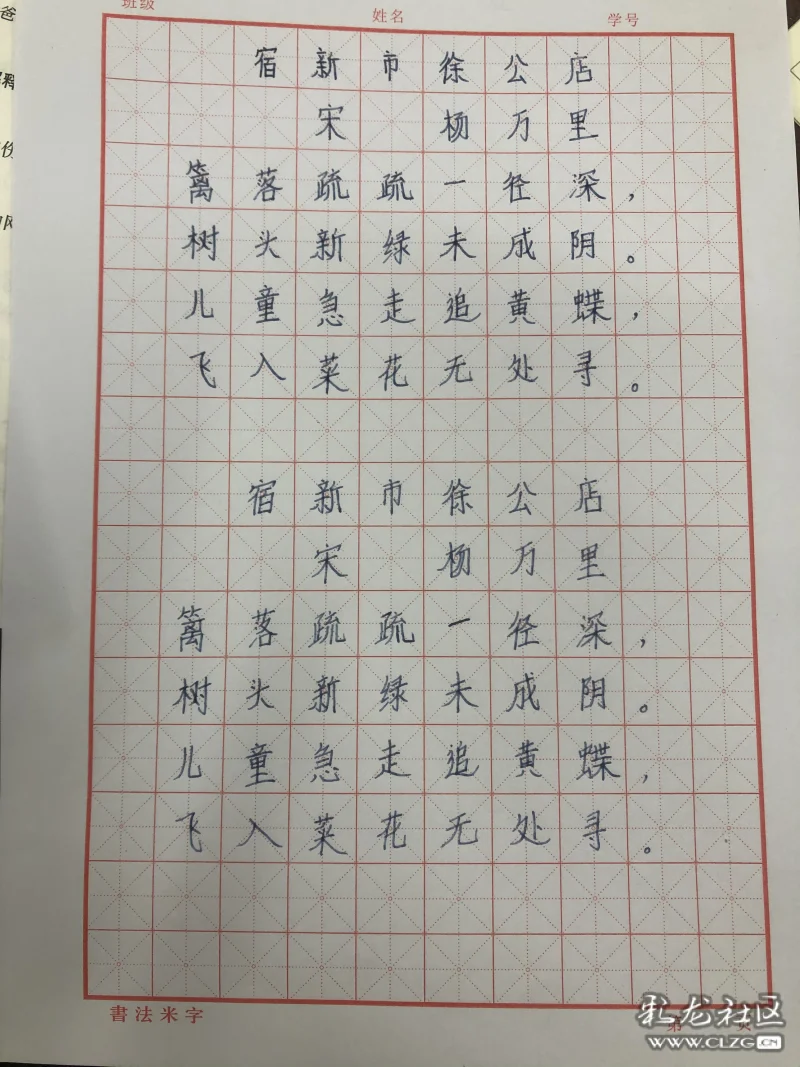 班级 姓名 学号
宿新市徐公店
宋 杨万里
篱落疏疏一径深，
树头新绿未成阴。
儿童急走追黄蝶，
飞入菜花无处寻。
宿新市徐公店
宋 杨万里
篱落疏疏一径深，
树头新绿未成阴。
儿童急走追黄蝶，
飞入菜花无处寻。
書法米字
第 页
爸
释
彩龙社区
www.CLZG.CN